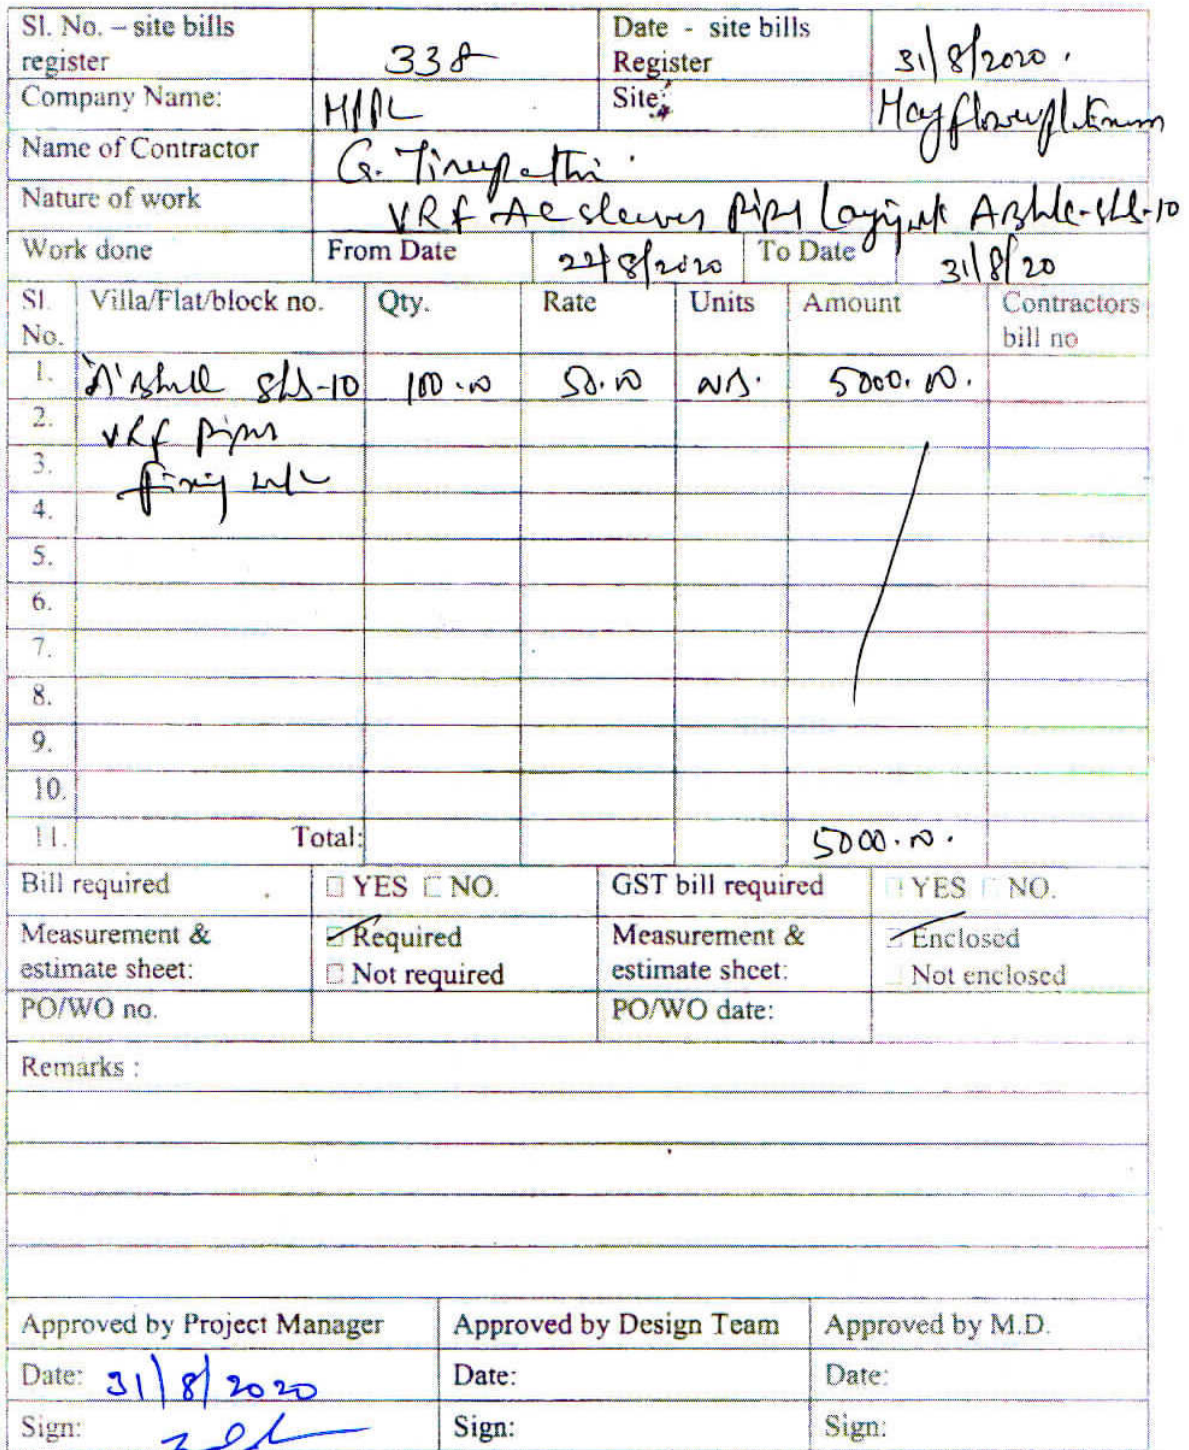 Sl. No. – site bills register 338 Date - site bills Register 31/8/2020.
Company Name: Site: Mayflower platinum
Name of Contractor G. Tirupathi.
Nature of work VRF AC sleeves pipes laying
Work done From Date 22/8/2020 To Date 31/8/20
Sl. No. Villa/Flat/block no. Qty. Rate Units Amount Contractors bill no
1. 'A' 10 100.00 50.00 5000.00.
2. VRF pipes
3. fixing
4.
5.
6.
7.
8.
9.
10.
11. Total: 5000.00.
Bill required YES NO. GST bill required YES NO.
Measurement & estimate sheet: Required Not required Measurement & estimate sheet: Enclosed Not enclosed
PO/WO no. PO/WO date:
Remarks :
Approved by Project Manager Approved by Design Team Approved by M.D.
Date: 31/8/2020 Date: Date:
Sign: Sign: Sign: